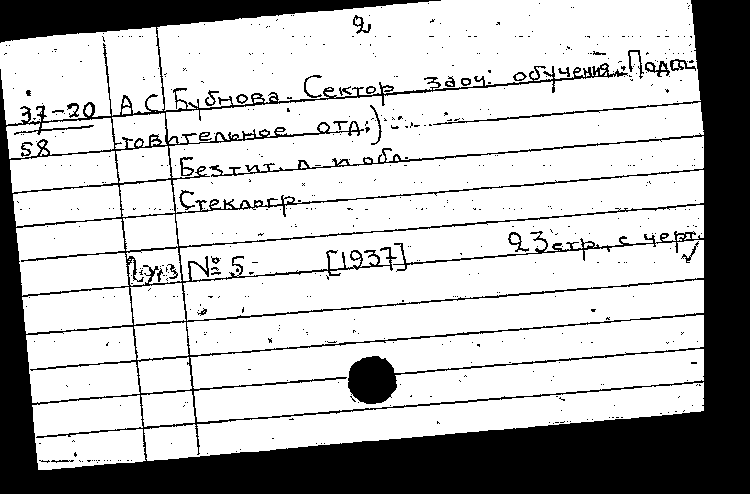 2
37-20 А.С Бубнова. Сектор заоч. обучения. Подго-
58 -товительное отд.)
Без тит. л. и обл.
Стеклогр.
№ 5. [1937] 23 стр., с черт.